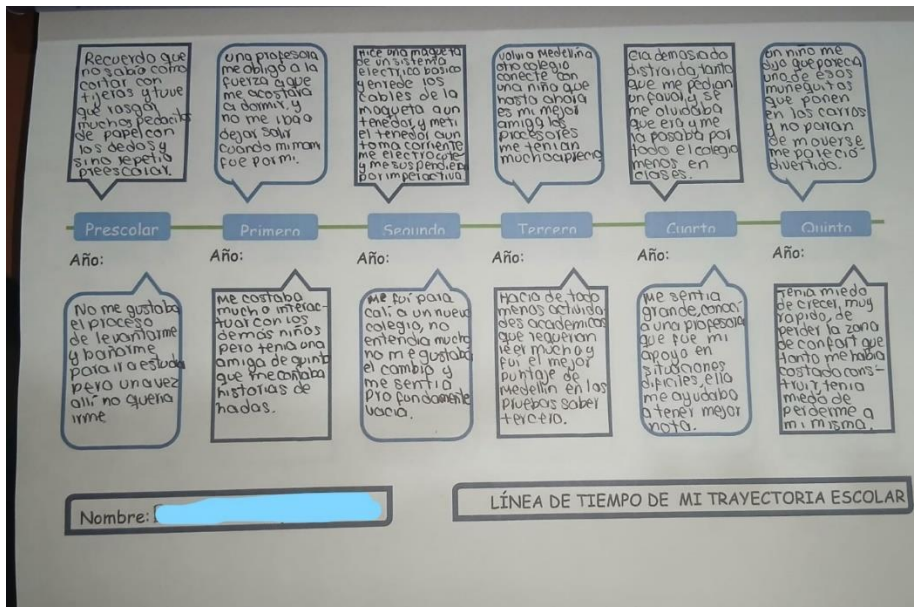 Recuerdo que
no sabia como
cortar con
tijeras y tuve
que rasgar
muchos pedacitos
de papel con
los dedos y
si no repetia
preescolar.
una profesora
me obligo a la
fuerza a que
me acostara
a dormir, y
no me iba a
dejar salir
cuando mi mam
fue por mi.
Hice una maqueta
de un sistema
electrico basico
y enrede los
cables de la
maqueta a un
tenedor y meti
el tenedor a un
toma corriente
me electrocute
y me suspendieron
por imperactiva
volvi a Medellin a
otro colegio
conecte con
una niña que
hasta ahora
es mi mejor
amiga los
profesores
me tenian
mucho aprecio
era demasiado
distraida, tanto
que me pedian
un favor y se
me olvidaba
que era y me
la pasaba por
todo el colegio
menos en
clases.
un niño me
dijo que parecia
uno de esos
muñequitos
que ponen
en los carros
y no paran
de moverse
me pareció
divertido.
Prescolar
Primero
Segundo
Tercero
Cuarto
Quinto
Año:
Año:
Año:
Año:
Año:
Año:
No me gustaba
el proceso
de levantarme
y bañarme
para ir a estudia
pero una vez
allí no queria
irme
Me costaba
mucho interac-
tuar con los
demás niños
pero tenia una
amiga de quinto
que me contaba
historias de
hadas.
Me fui para
cali a un nuevo
colegio, no
entendia mucho
no me gustaba
el cambio y
me sentia
profundamente
vacia.
Hacia de todo
menos activida
des academicas
que requerian
leer mucho y
fui el mejor
puntaje de
Medellin en las
pruebas saber
tercero.
Me sentia
grande, conoci
a una profesora
que fue mi
apoyo en
situaciones
dificiles, ella
me ayudaba
a tener mejor
nota.
Tenia miedo
de crecer, muy
rapido, de
perder la zona
de confort que
tanto me habia
costado cons-
truir, tenia
miedo de
perderme a
mi misma.
Nombre:
LÍNEA DE TIEMPO DE MI TRAYECTORIA ESCOLAR